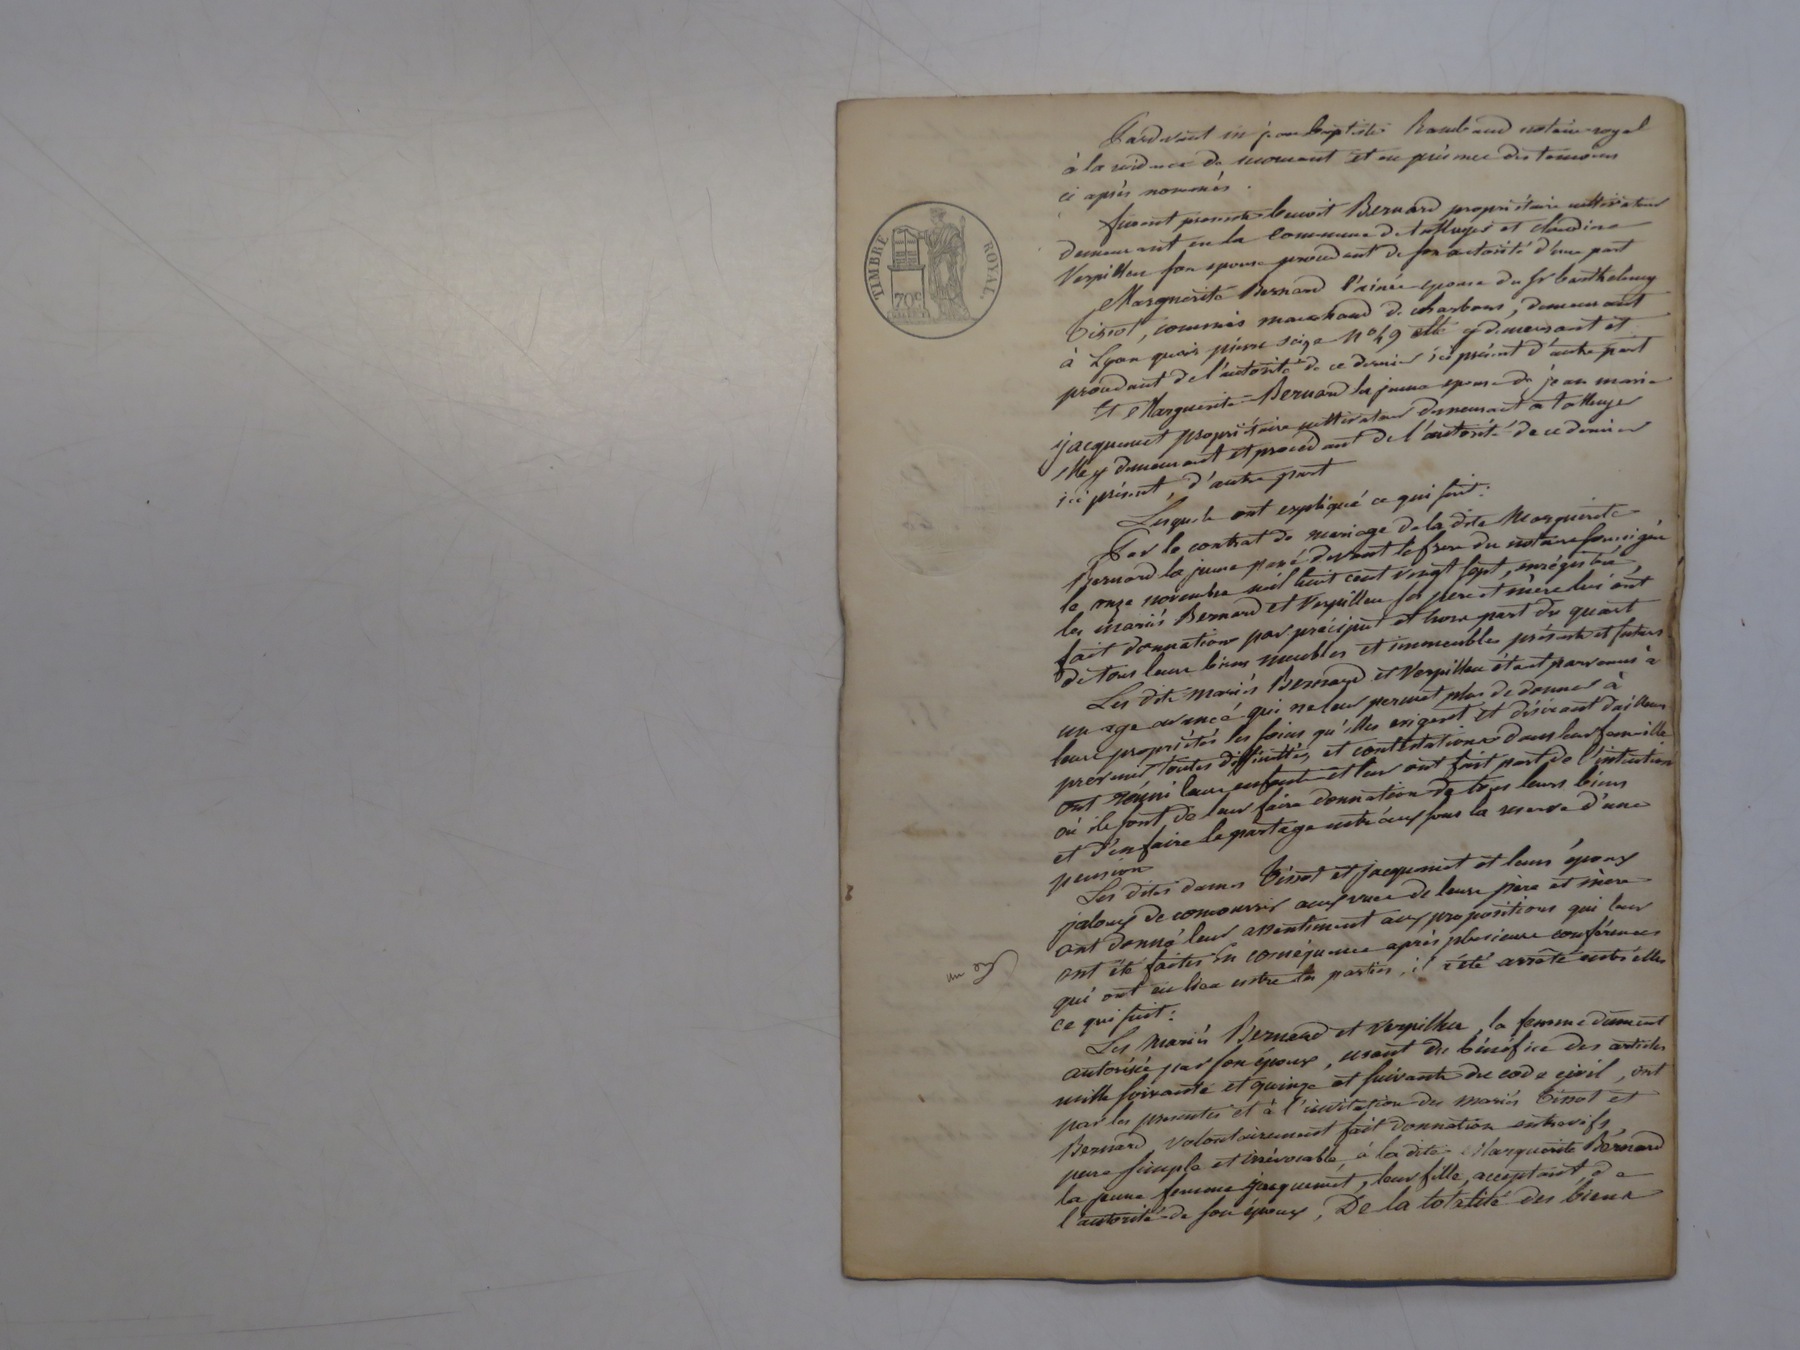 TIMBRE ROYAL.
70c
Pardevant me jean baptiste Rambaud notaire royal
à la residence de mornant et en présence des temoins
ci après nommés.
furent presents benoit Bernard propriétaire cultivateur
demeurant en la commune de taluyers et claudine
Verpilleu son epouse procedant de son autorité d'une part
Marguerite Bernard l'ainée epouse du Sr barthelemy
Tissot, commis marchand de charbons, demeurant
à Lyon quai pierre scize No 49 elle y demeurant et
procedant de l'autorité de ce dernier ici présent d'autre part
Et Marguerite Bernard la jeune epouse de jean marie
jacquemet propriétaire cultivateur demeurant a taluyers
elle y demeurant et procedant de l'autorité de ce dernier
ici présent, d'autre part
Lesquels ont expliqué ce qui suit:
Par le contrat de mariage de la dite Marguerite
Bernard la jeune passé devant le frere du notaire soussigné
le onze novembre mil huit cent vingt sept, enrégistré,
les mariés Bernard et Verpilleu ses pere et mère lui ont
fait donnation par préciput et hors part du quart
de tous leurs biens meubles et immeubles présents et futurs.
Les dits mariés Bernard et Verpilleu étant parvenus à
un age avancé qui ne leur permet plus de donner à
leurs propriétés les soins qu'elles exigent et désirant d'ailleurs
prevenir toutes difficultés et contestations dans leur famille
ont réuni leurs enfants et leur ont fait part de l'intention
où ils sont de leur faire donnation de tous leurs biens
et d'en faire le partage entr'eux sous la reserve d'une
pension
Les dites dames Tissot et jacquemet et leurs époux
jaloux de concourrir aux vues de leurs père et mère
ont donné leur assentiment aux propositions qui leur
ont été faites En conséquence après plusieurs conférences
qui ont eu lieu entre les parties, il a été arrêté entr'elles
ce qui suit:
Les mariés Bernard et Verpilleu, la femme dument
autorisée par son époux, usant du bénéfice des articles
mille soixante et quinze et suivants du code civil, ont
par les presentes et à l'invitation des mariés Tissot et
Bernard volontairement fait donnation entrevifs
pure simple et irrévocable, à la dite Marguerite Bernard
la jeune femme jacquemet, leur fille, acceptant de
l'autorité de son époux, De la totalité des biens